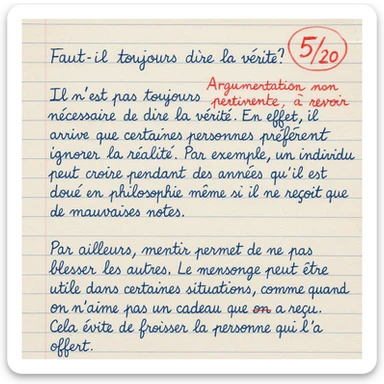 Faut-il toujours dire la vérite?
5/20
Argumentation non
pertinente, à revoir
Il n'est pas toujours
nécessaire de dire la vérité. En effet, il
arrive que certaines personnes préfèrent
ignorer la réalité. Par exemple, un individu
peut croire pendant des années qu'il est
doué en philosophie même si il ne reçoit que
de mauvaises notes.
Par ailleurs, mentir permet de ne pas
blesser les autres. Le mensonge peut être
utile dans certaines situations, comme quand
on n'aime pas un cadeau que on a reçu.
Cela évite de froisser la personne qui l'a
offert.